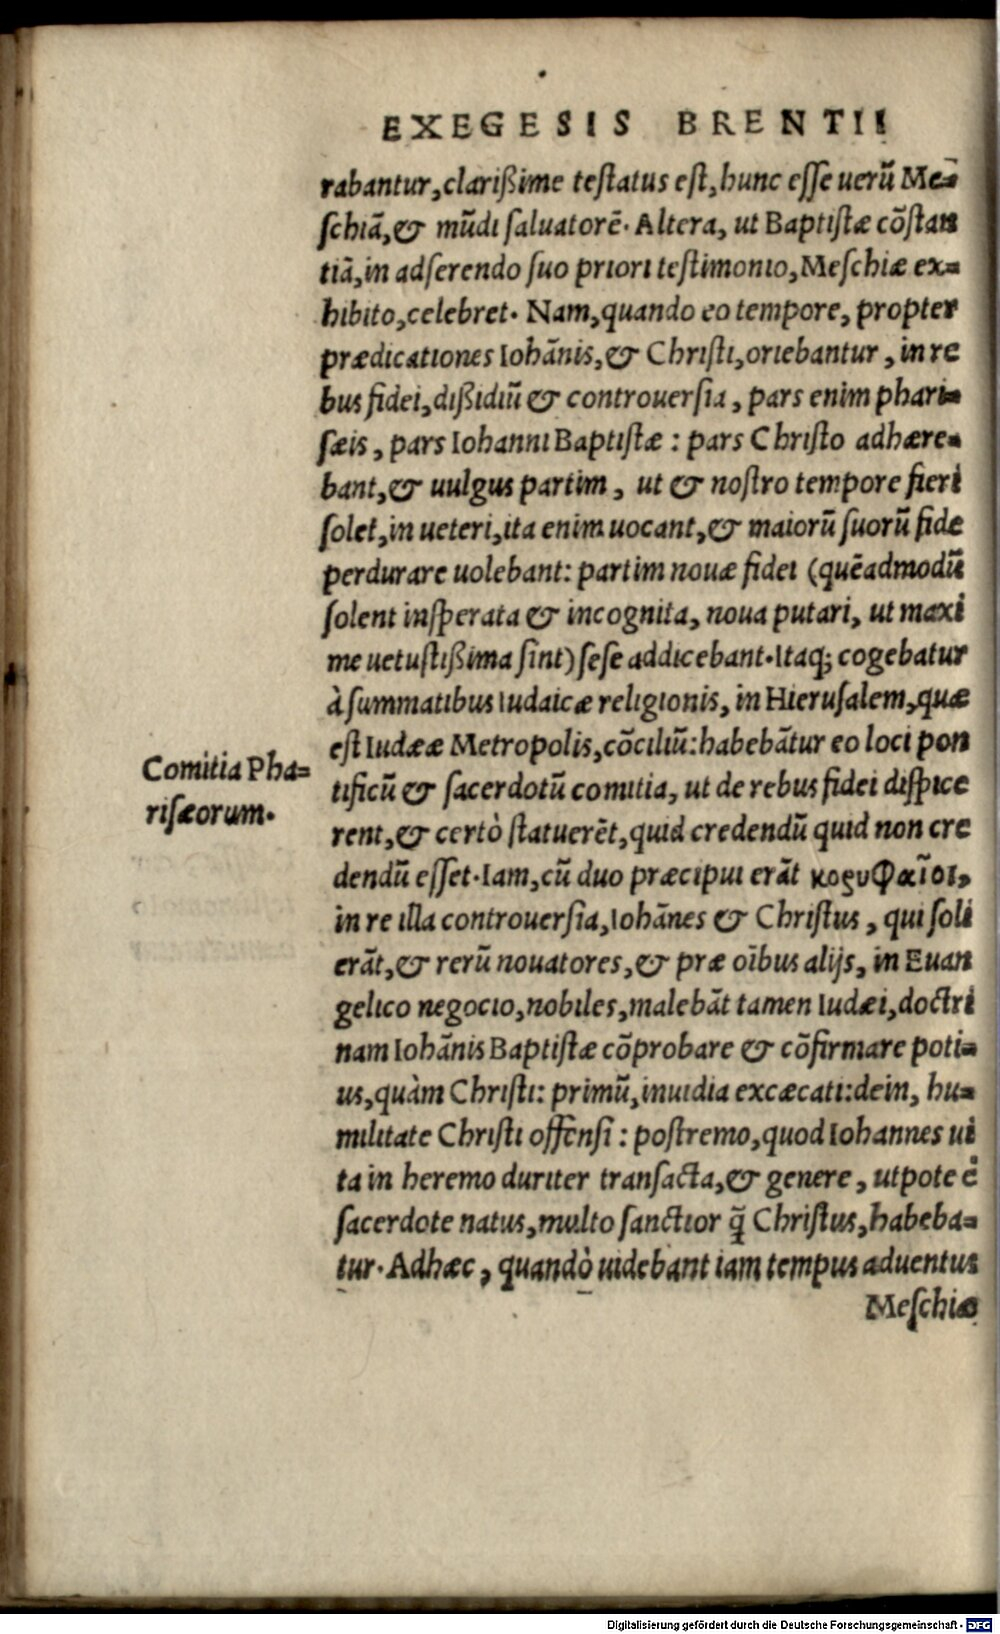 EXEGESIS BRENTII
rabantur, clarißime testatus est, hunc esse uerũ Me-
schiã, & mũdi saluatorẽ. Altera, ut Baptistæ cõstan
tiã, in adserendo suo priori testimonio, Meschiæ ex-
hibito, celebret. Nam, quando eo tempore, propter
prædicationes Iohãnis, & Christi, oriebantur, in re
bus fidei, dißidiũ & controuersia, pars enim phari-
sæis, pars Iohanni Baptistæ: pars Christo adhære-
bant, & uulgus partim, ut & nostro tempore fieri
solet, in ueteri, ita enim uocant, & maiorũ suorũ fide
perdurare uolebant: partim nouæ fidei (quẽadmodũ
solent insperata & incognita, noua putari, ut maxi
me uetustißima sint) sese addicebant. Itaq; cogebatur
à summatibus Iudaicæ religionis, in Hierusalem, quæ
est Iudææ Metropolis, cõciliũ: habebãtur eo loci pon
tificũ & sacerdotũ comitia, ut de rebus fidei dispice
rent, & certò statuerẽt, quid credendũ quid non cre
dendũ esset. Iam, cũ duo præcipui erãt κορυφαῖοι,
in re illa controuersia, Iohãnes & Christus, qui soli
erãt, & rerũ nouatores, & præ oĩbus alijs, in Euan
gelico negocio, nobiles, malebãt tamen Iudæi, doctri
nam Iohãnis Baptistæ cõprobare & cõfirmare poti-
us, quàm Christi: primũ, inuidia excæcati: dein, hu-
militate Christi offensi: postremo, quod Iohannes ui
ta in heremo duriter transacta, & genere, utpote ẽ
sacerdote natus, multo sanctior q̃ Christus, habeba-
tur. Adhæc, quandò uidebant iam tempus aduentus
Meschiæ
Comitia Pha-
risæorum.
Digitalisierung gefördert durch die Deutsche Forschungsgemeinschaft - DFG